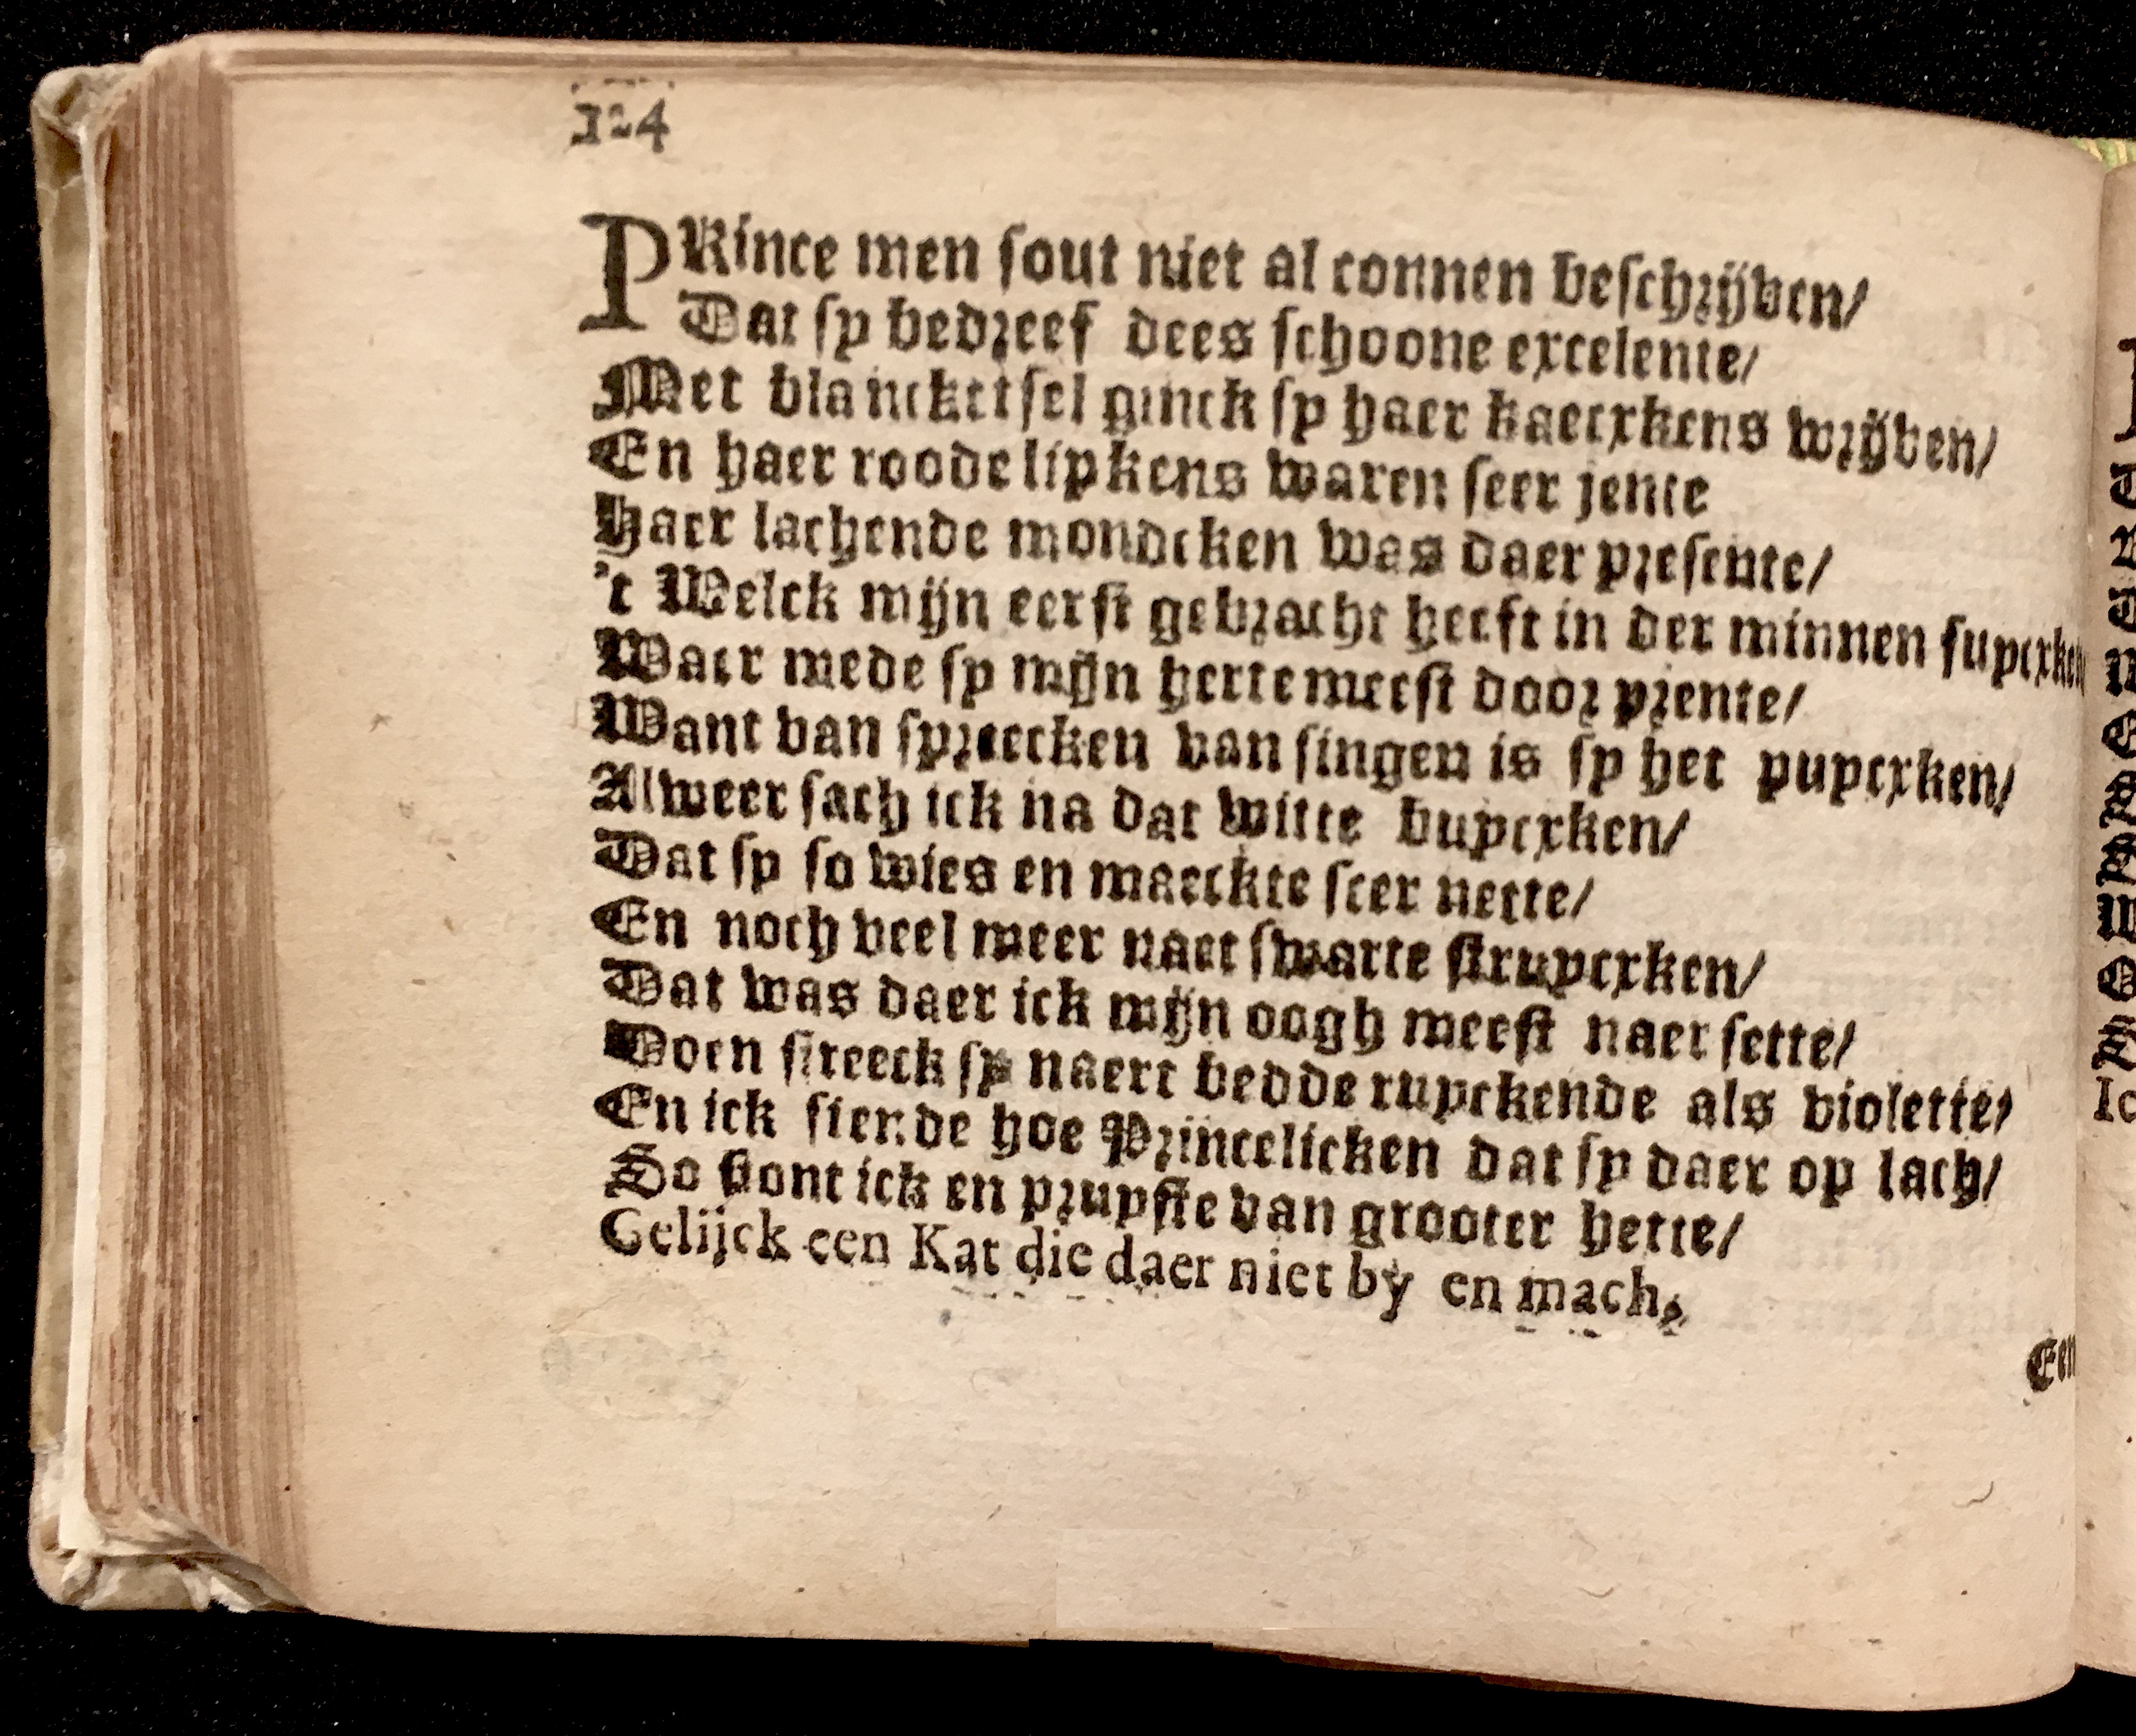 124
PRince men sout niet al connen beschrijven/
Dat sy bedreef dees schoone excelente/
Met blanckettsel ginck sy haer kaecxkens wrijven/
En haer roode lipkens waren seer jente
Haer lachende mondcken was daer presente/
't Welck mijn eerst gebracht heeft in der minnen
Waer mede sy mijn herte meest door prente/
Want van spreecken van singen is sy het puycxken/
Alweer sach ick na dat witte buycxken/
Dat sy so wies en maeckte seer nette/
En noch veel meer naet swarte struycxken/
Dat was daer ick mijn oogh meest naer sette/
Doen streeck sy naert bedde ruyckende als violette/
En ick siende hoe Princelicken dat sy daer op lach/
So stont ick en pruyste van grooter hette/
Gelijck een Kat die daer niet by en mach,
Een